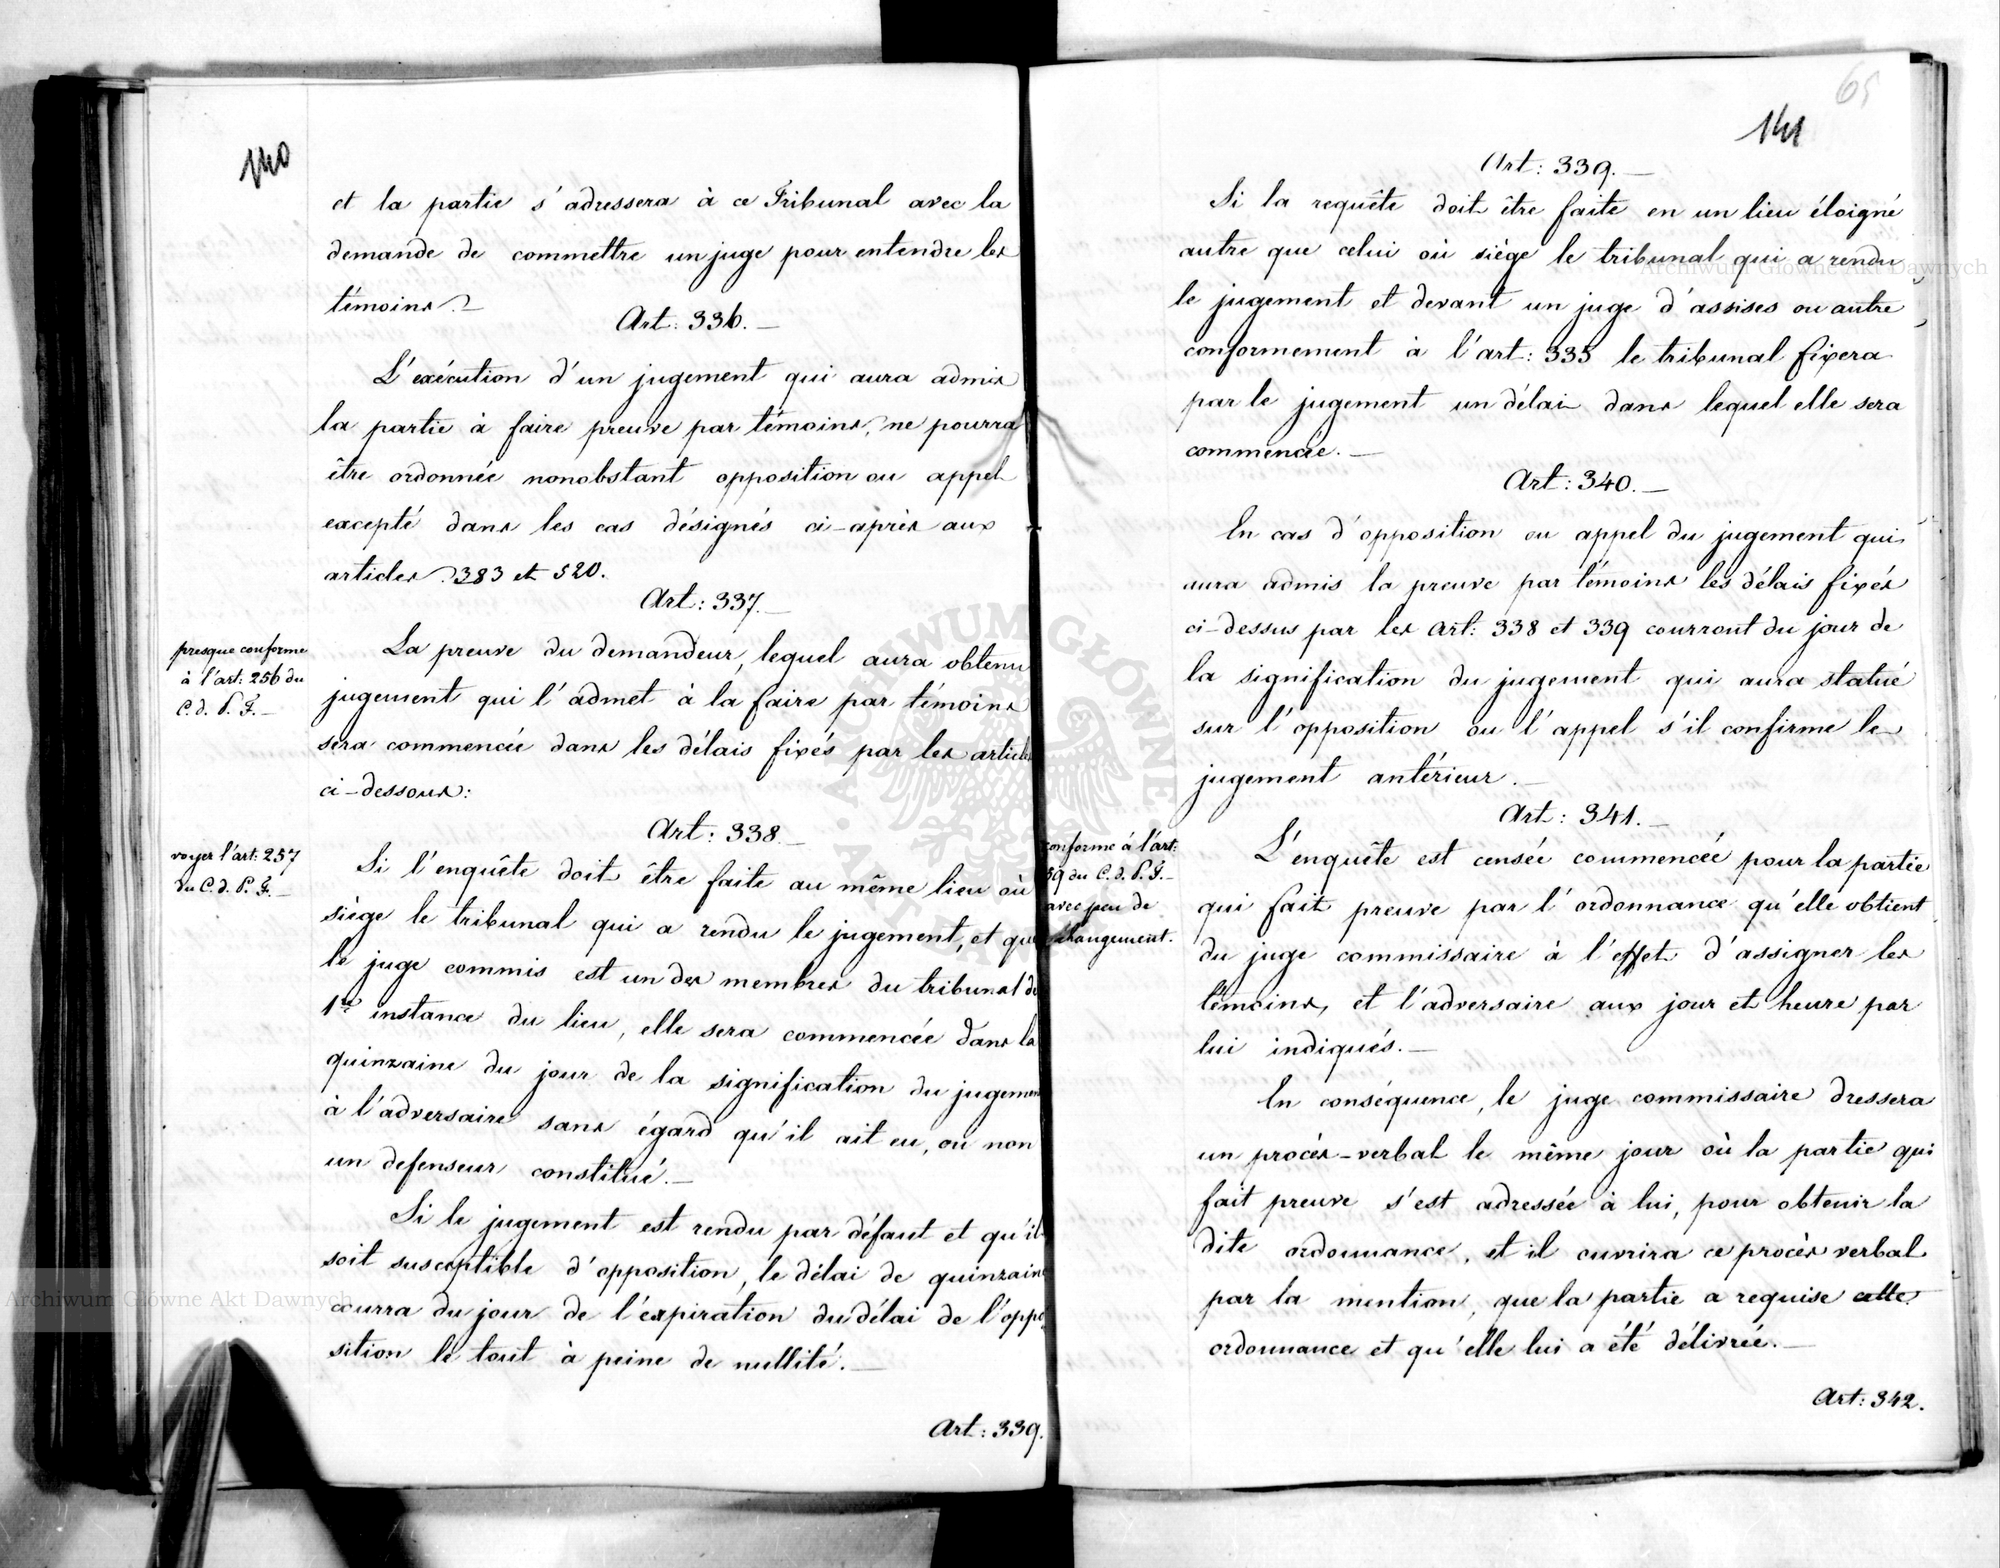 140
et la partie s'adressera à ce Tribunal avec la
demande de commettre un juge pour entendre les
témoins.—
Art: 336.—
L'exécution d'un jugement qui aura admis
la partie à faire preuve par témoins, ne pourra
être ordonnée nonobstant opposition ou appel
excepté dans les cas désignés ci-après aux
articles 383 et 520.
Art: 337.—
presque conforme
à l'art: 256 du
C. d. P. F.—
La preuve du demandeur, lequel aura obtenu
jugement qui l'admet à la faire par témoins
sera commencée dans les délais fixés par les articles
ci-dessous:
Art: 338.—
voyer l'art: 257
du C. d. P. F.—
Si l'enquête doit être faite au même lieu où
siège le tribunal qui a rendu le jugement, et que
le juge commis est un des membres du tribunal de
1re instance du lieu, elle sera commencée dans la
quinzaine du jour de la signification du jugemen
à l'adversaire sans égard qu'il ait eu, ou non
un defenseur constitué.—
Si le jugement est rendu par défaut et qu'il
soit susceptible d'opposition, le délai de quinzaine
courra du jour de l'expiration du délai de l'oppo
sition le tout à peine de nullité.—
Art: 339.
65
141
Art: 339.—
Si la requête doit être faite en un lieu éloigné
autre que celui où siège le tribunal qui a rendu
le jugement et devant un juge d'assises ou autre
conformement à l'art: 335 le tribunal fixera
par le jugement un délai dans lequel elle sera
commencée.—
Art: 340.—
En cas d'opposition ou appel du jugement qui
aura admis la preuve par témoins les délais fixés
ci-dessus par les art: 338 et 339 courront du jour de
la signification du jugement qui aura statué
sur l'opposition ou l'appel s'il confirme le
jugement antérieur.—
Art: 341.—
conforme à l'art:
59 du C. d. P. F.—
avec peu de
changement.
L'enquête est censée commencée pour la partie
qui fait preuve par l'ordonnance qu'elle obtient
du juge commissaire à l'effet d'assigner les
témoins, et l'adversaire aux jour et heure par
lui indiqués.—
En conséquence, le juge commissaire dressera
un procès-verbal le même jour où la partie qui
fait preuve s'est adressée à lui, pour obtenir la
dite ordonnance, et il ouvrira ce procès verbal
par la mention, que la partie a requise cette
ordonnance et qu'elle lui a été délivrée.—
Art: 342.
Archiwum Główne Akt Dawnych
Archiwum Główne Akt Dawnych
ARCHIWUM GŁÓWNE AKT DAWNYCH